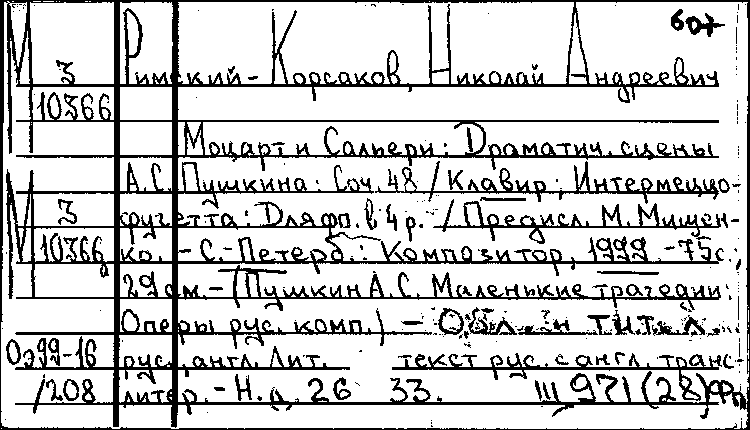 607
М 3 Римский-Корсаков, Николай Андреевич
10366
Моцарт и Сальери: Драматич. сцены
А.С. Пушкина: Соч. 48 / Клавир; Интермеццо-
М 3 фугетта: Для фп. в 4 р. / Предисл. М. Мищен-
10366 ко. - С.-Петерб.: Композитор, 1999. - 75 с.;
29 см. - (Пушкин А.С. Маленькие трагедии:
Оперы рус. комп.) - Обл. и тит. л.
Оэ99-16 рус., англ. Лит. текст рус. с англ. транс-
/208 литер. - Н.д. 26 33. Ш 971(28)Фп